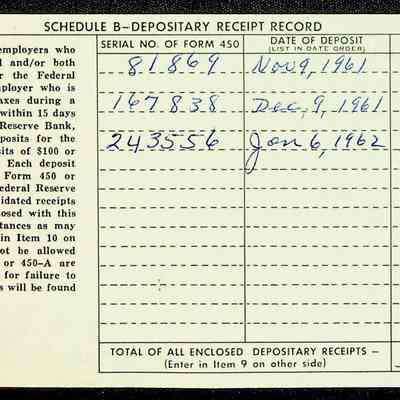 SCHEDULE B—DEPOSITARY RECEIPT RECORD
employers who
l and/or both
r the Federal
ployer who is
axes during a
within 15 days
Reserve Bank,
posits for the
sits of $100 or
Each deposit
Form 450 or
ederal Reserve
idated receipts
osed with this
tances as may
in Item 10 on
ot be allowed
or 450-A are
for failure to
s will be found
SERIAL NO. OF FORM 450
DATE OF DEPOSIT
(LIST IN DATE ORDER)
81869 Nov 9, 1961
167838 Dec, 9, 1961
243556 Jan 6, 1962
TOTAL OF ALL ENCLOSED DEPOSITARY RECEIPTS —
(Enter in Item 9 on other side)